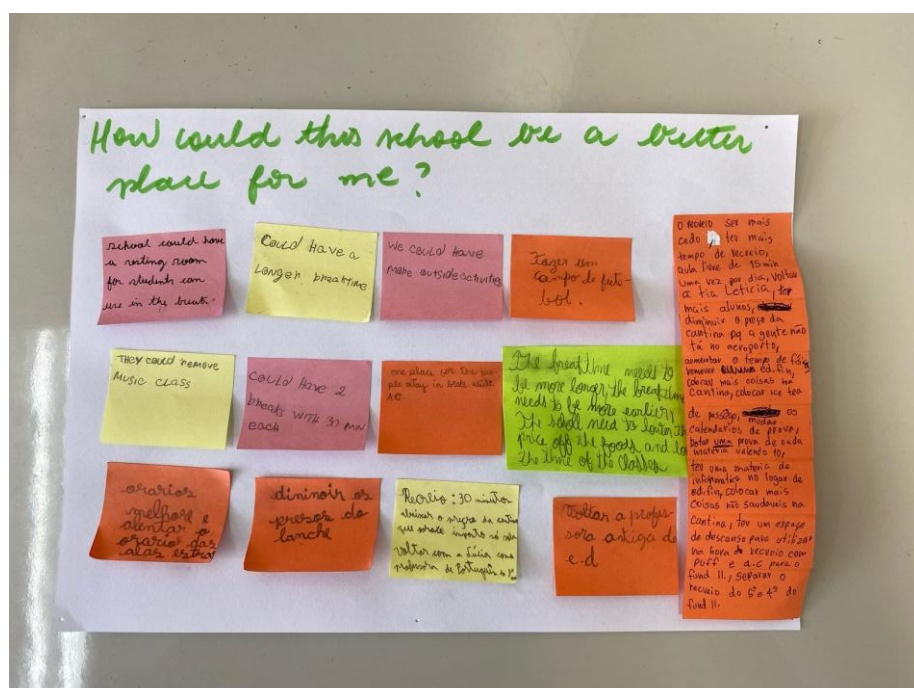 How could this school be a better
place for me?
school could have
a resting room
for students can
use in the break.
Could Have a
Longer breaktime
We could Have
more outside activities
Fazer um
campo de fute-
bol.
THEY could remove
Music class
Could Have 2
breaks WITH 30 min
each
one place for the peo-
ple stay in brake with
A.C.
The breaktime needs to
be more longer, the breaktime
needs to be more earlier,
The school need to lower the
price off the foods, and
the time of the classes
orarios
melhore e
alentar o
orario das
alas estras
dininoir os
presos do
lanche
Recreio: 30 minutos
abaixar o preço da cantina
voltar com a como
professora de Português do
Voltar a profes-
sora antiga de
e.d
O recreio ser mais
cedo, ter mais
tempo de recreio,
aula livre de 15 min
uma vez por dia, voltar
a tia Leticia, ter
mais alunos,
diminuir o preço da
cantina pq a gente não
tá no aeroporto,
aumentar o tempo de física
remover ed. fin,
colocar mais coisas na
cantina, colocar ice tea
de pessego, mudar os
calendarios de prova,
botar uma prova de cada
matéria valendo 10,
ter uma matéria de
informatica no lugar de
ed.fin, colocar mais
coisas não saudaveis na
cantina, ter um espaço
de descanso para utilizar
na hora do recreio com
puff e a.c para o
fund II., separar o
recreio do 5° e 4° do
fund II.